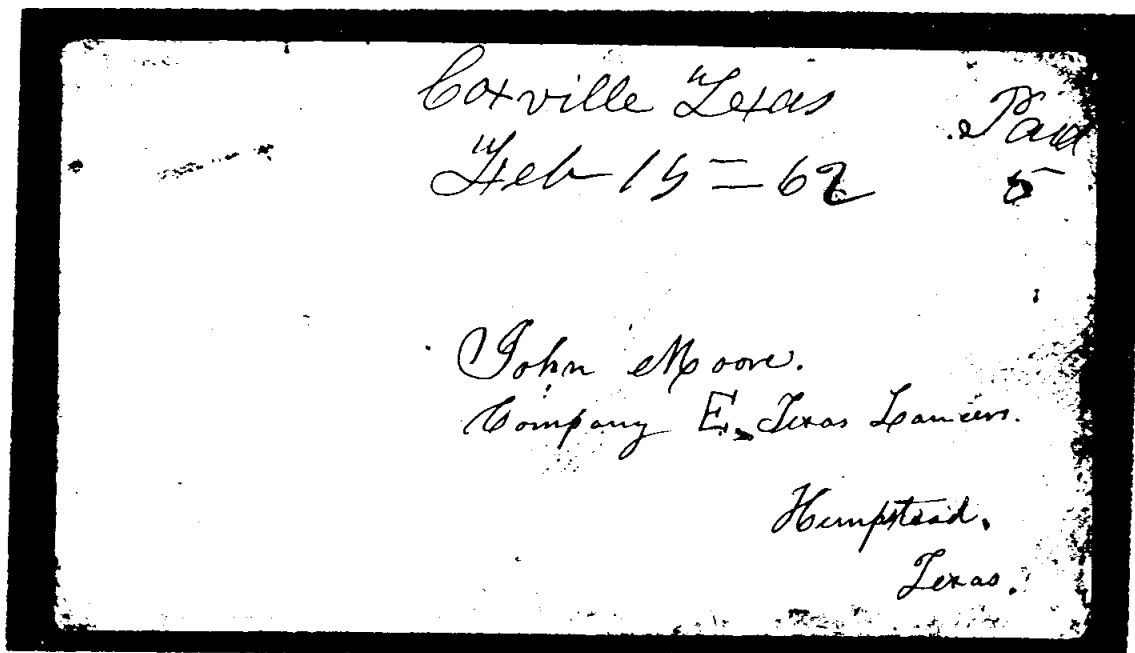 Coxville Texas
Feb 15 = 62
Paid
5
John Moore.
Company E, Texas Lancers.
Hempstead,
Texas.